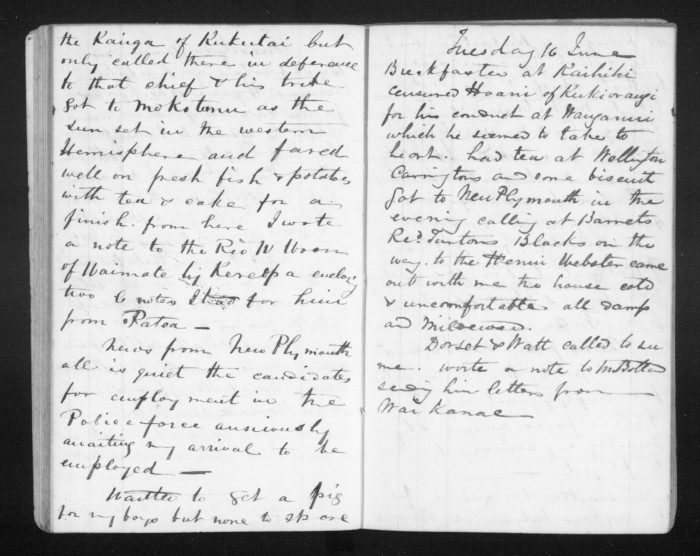 the Kainga of Kukutai but
only called there in deference
to that chief & his tribe
Got to Mokotunu as the
sun set in the western
Hemisphere and fared
well on fresh fish & potatoes
with tea & cake for a
finish. from here I wrote
a note to the Rev W
of Waimate by enclosg
two notes I had for him
from Patea —
News from New Plymouth
all is quiet the candidates
for employment in the
Police force anxiously
awaiting my arrival to be
employed —
Wanted to get a pig
for my boys but none to spare
Tuesday 16 June
Breakfasted at Kaihihi
censured Hoani of
for his conduct at Wanganui
which he seemed to take to
heart. had tea at Wellington
Carringtons and some biscuit
Got to New Plymouth in the
evening calling at Barretts
Revd Turtons Blacks on the
way. to the Henui Webster came
out with me the house cold
& uncomfortable all damp
and Mildewed.
Dorset & Watt called to see
me. wrote a note to
sendg him letters from
Waikanae